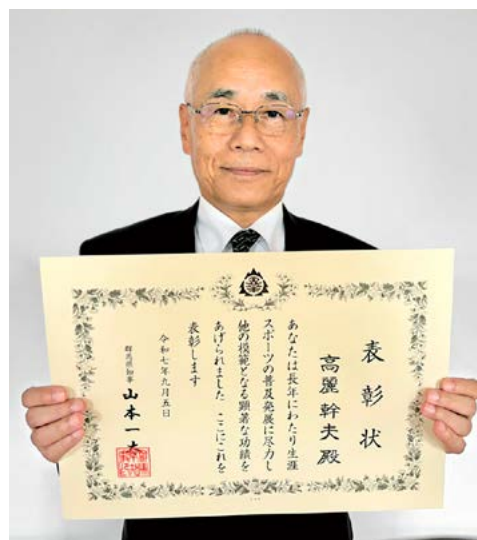 表彰状
高麗幹夫殿
あなたは長年にわたり生涯
スポーツの普及発展に尽力し
他の模範となる顕著な功績を
あげられました ここにこれを
表彰します
令和七年九月五日
群馬県知事
山本一太